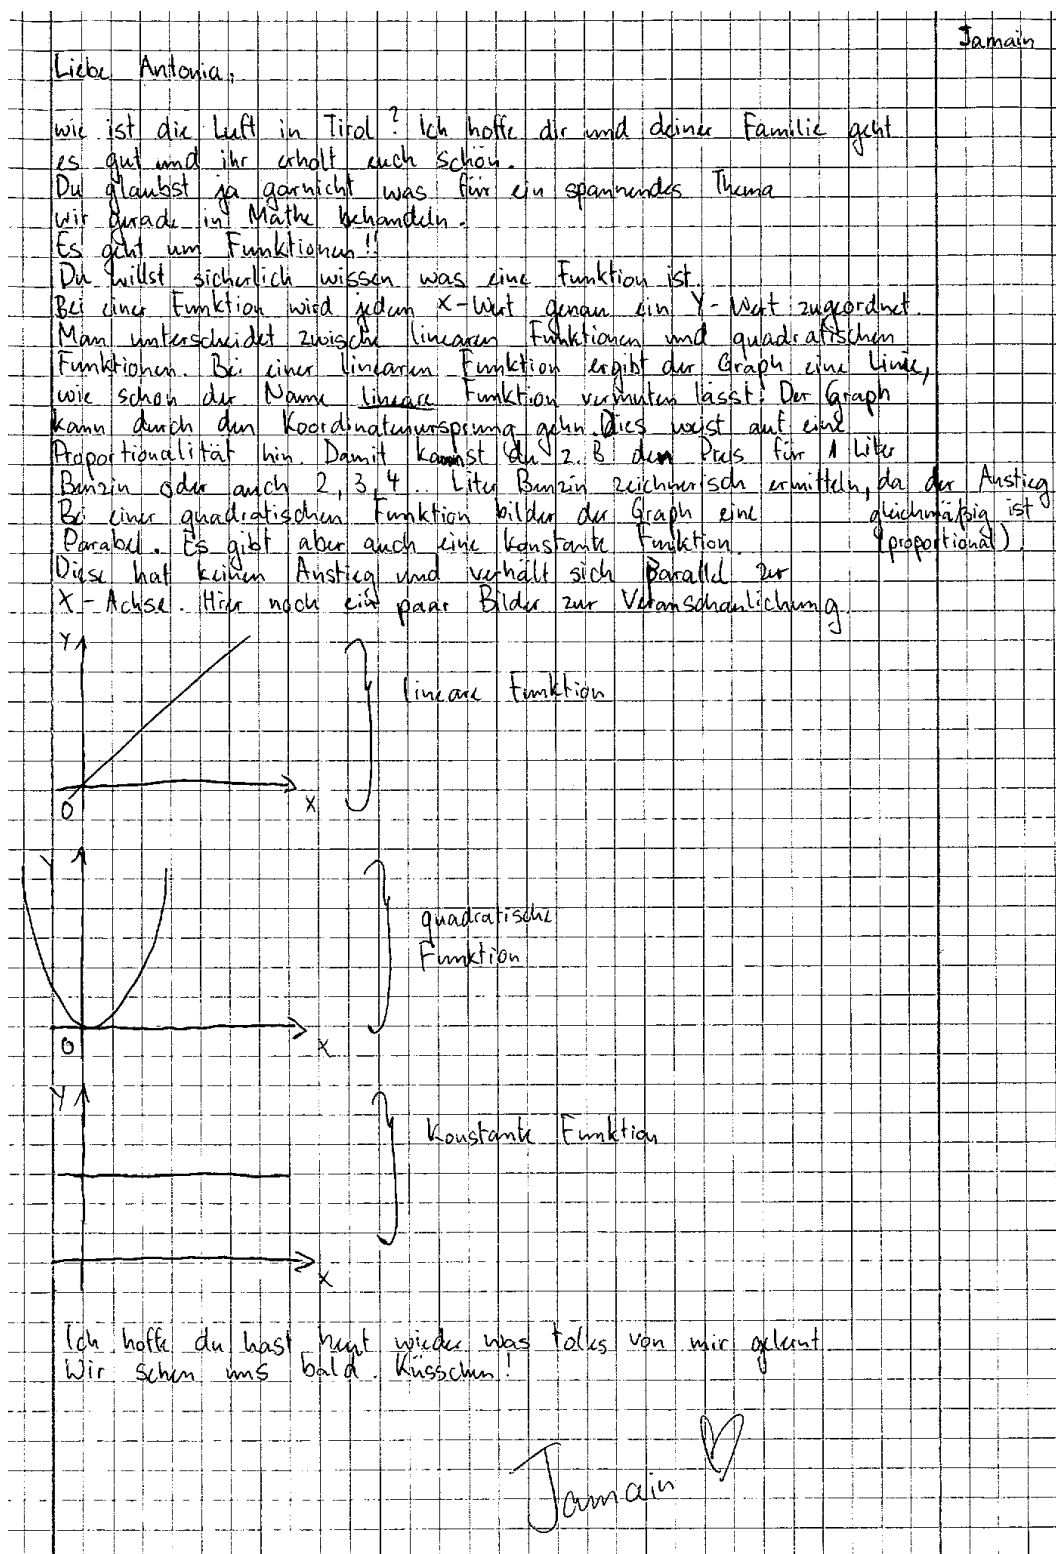 Jamain
Liebe Antonia,
wie ist die Luft in Tirol? Ich hoffe dir und deiner Familie geht
es gut und ihr erholt euch schön.
Du glaubst ja garnicht was für ein spannendes Thema
wir gerade in Mathe behandeln.
Es geht um Funktionen!!
Du willst sicherlich wissen was eine Funktion ist.
Bei einer Funktion wird jedem X-Wert genau ein Y-Wert zugeordnet.
Man unterscheidet zwische linearen Funktionen und quadratischen
Funktionen. Bei einer linearen Funktion ergibt der Graph eine Linie,
wie schon der Name lineare Funktion vermuten lässt! Der Graph
kann durch den Koordinatenursprung gehn. Dies weist auf eine
Proportionalität hin. Damit kannst du z.B den Preis für 1 Liter
Benzin oder auch 2,3,4... Liter Benzin zeichnerisch ermitteln, da der Anstieg
gleichmäßig ist
(proportional).
Bei einer quadratischen Funktion bilder der Graph eine
Parabel. Es gibt aber auch eine konstante Funktion.
Diese hat keinen Anstieg und verhält sich Parallel zur
X-Achse. Hier noch ein paar Bilder zur Veranschaulichung.
Y
lineare Funktion
0
X
Y
quadratische
Funktion
0
X
Y
Konstante Funktion
X
Ich hoffe du hast heut wieder was tolles von mir gelernt.
Wir sehen uns bald. Küsschen!
Jamain